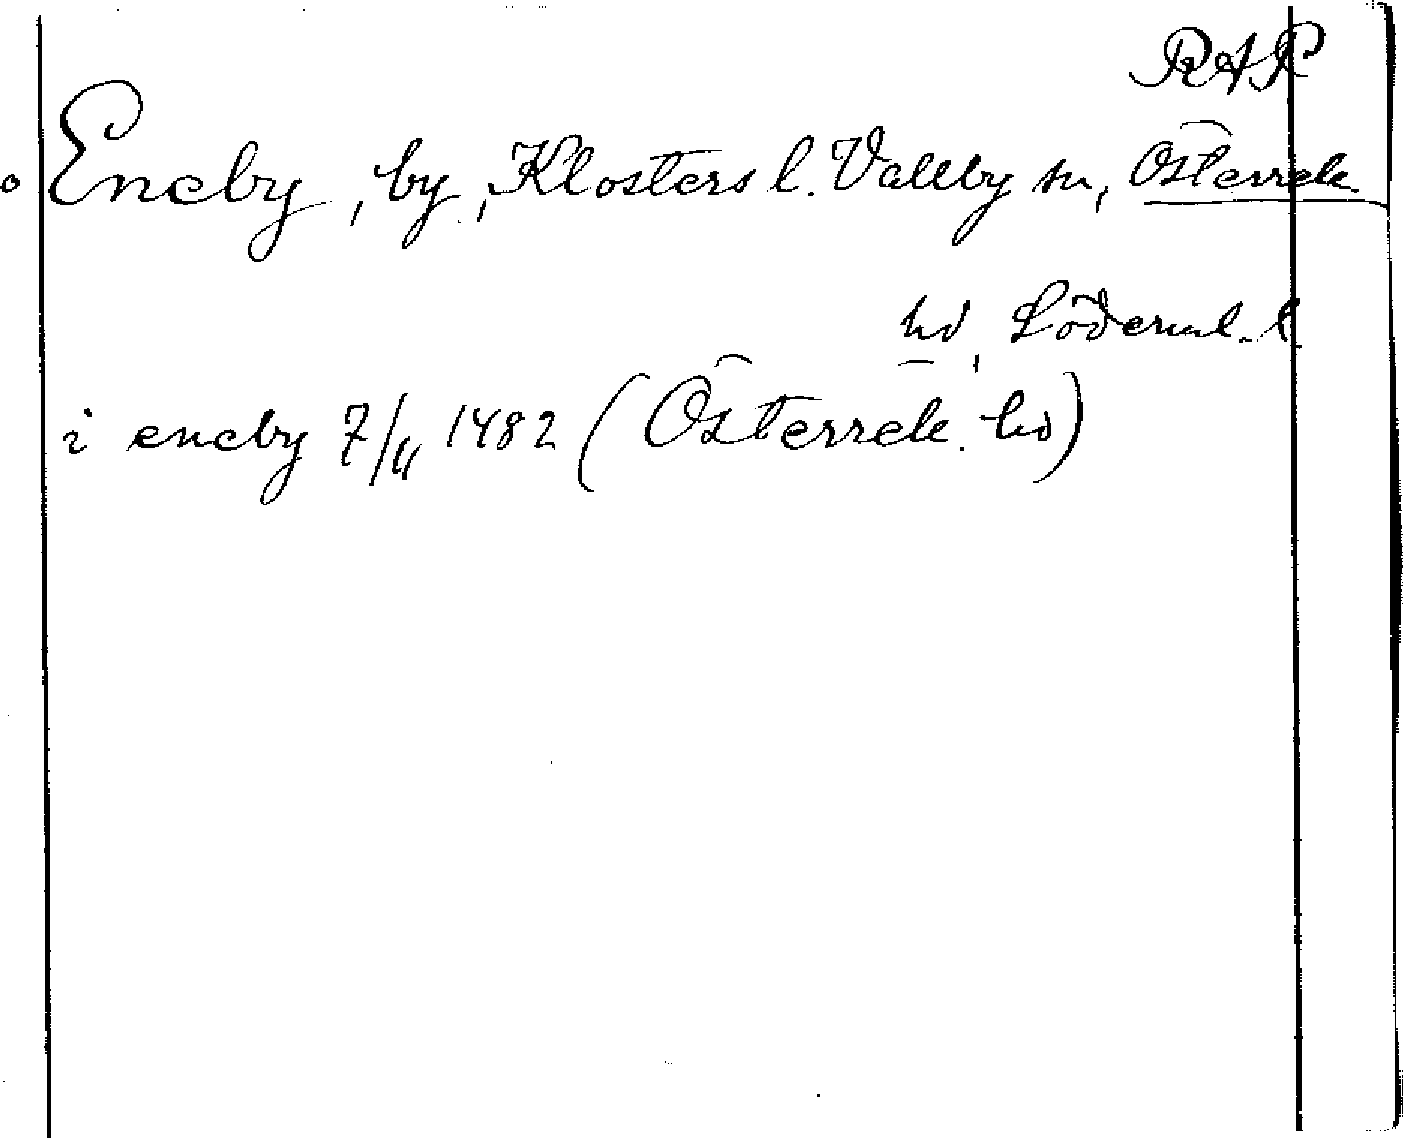 RAP
o Eneby, by, Klosters l. Vallby sn, Österrek.
hd, Söderml. l
i eneby 7/11 1482 (Österrek. hd)